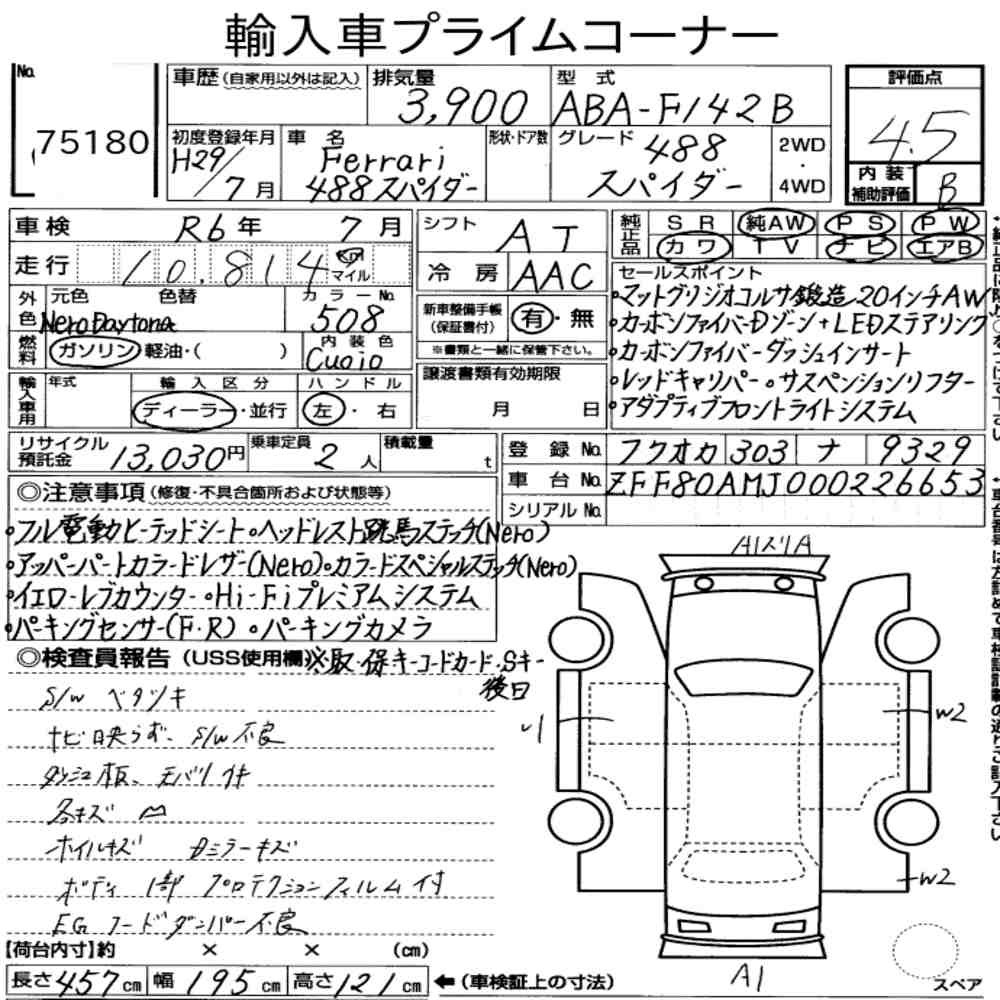 輸入車プライムコーナー
No. 75180
車歴(自家用以外は記入)
排気量 3,900
型式 ABA-F142B
評価点 4.5
初度登録年月 H29/7月
車名 Ferrari 488スパイダー
形状・ドア数
グレード 488 スパイダー
2WD・4WD
内装補助評価 B
車検 R6年 7月
シフト AT
純正品 SR 純AW PS PW
カワ TV ナビ エアB
走行 10,814 Km マイル
冷房 AAC
セールスポイント
・マットグリジオコルサ鍛造20インチAW
・カーボンファイバーDゾーン+LEDステアリング
・カーボンファイバーダッシュインサート
・レッドキャリパー・サスペンションリフター
・アダプティブフロントライトシステム
外色 元色 色替 Nero Daytona
カラーNo. 508
新車整備手帳(保証書付) 有・無
※書類と一緒に保管下さい。
燃料 ガソリン 軽油・( )
内装色 Cuoio
輸入車用 年式
輸入区分 ディーラー・並行
ハンドル 左・右
譲渡書類有効期限 月 日
リサイクル預託金 13,030円
乗車定員 2人
積載量 t
登録No. フクオカ 303 ナ 9329
車台No. ZFF80AMJ000226653
シリアルNo.
◎注意事項(修復・不具合箇所および状態等)
・フル電動ヒーテッドシート・ヘッドレスト跳馬ステッチ(Nero)
・アッパーパートカラードレザー(Nero)・カラードスペシャルステッチ(Nero)
・イエローレブカウンター・Hi-Fiプレミアムシステム
・パーキングセンサー(F・R)・パーキングカメラ
◎検査員報告(USS使用欄)※取・保・キーコードカード・Sキー後日
S/W ベタツキ
ナビ映らず、S/W不良
各キズ
ホイルキズ Dミラーキズ
ボディ 1部 プロテクションフィルム付
EG フードダンパー不良
A1スリA
U1
W2
W2
A1
スペア
【荷台内寸】約 × × (cm)
長さ457cm 幅195cm 高さ121cm ←(車検証上の寸法)